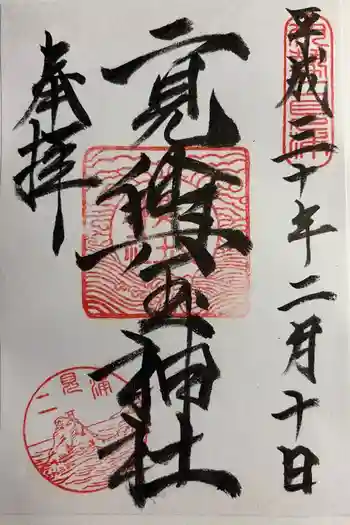 平成三十年二月十日
二見興玉神社
奉拝
二見浦